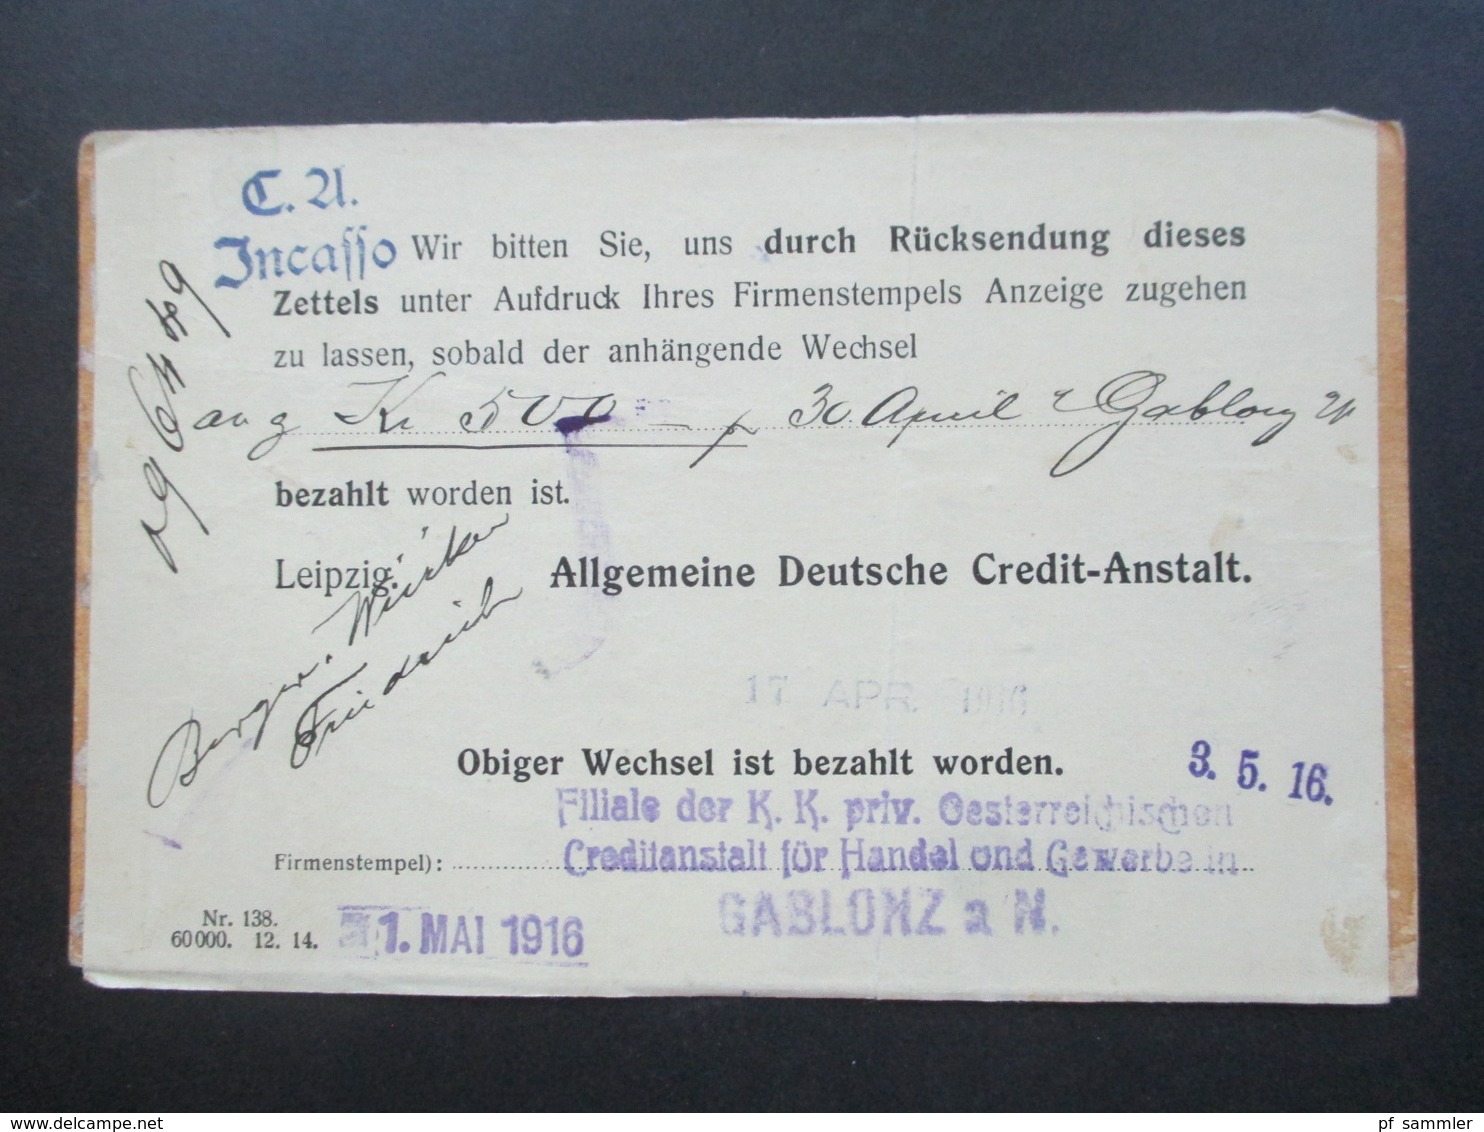 C. A.
Incasso
Wir bitten Sie, uns durch Rücksendung dieses
Zettels unter Aufdruck Ihres Firmenstempels Anzeige zugehen
zu lassen, sobald der anhängende Wechsel
Kr 500 30 April Gablonz
bezahlt worden ist.
Leipzig. Allgemeine Deutsche Credit-Anstalt.
Berger
Friedrich
17 APR. 1916
Obiger Wechsel ist bezahlt worden. 3. 5. 16.
Filiale der K. K. priv. Oesterreichischen
Creditanstalt für Handel und Gewerbe in
Firmenstempel):
GABLONZ a N.
Nr. 138.
60000. 12. 14.
1. MAI 1916
www.delcampe.net
pf_sammler